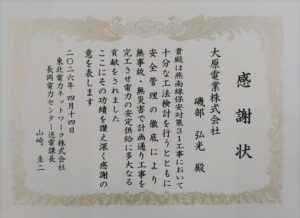 感謝状
大原電業株式会社
磯部 弘光 殿
貴殿は燕南線保安対策31工事において
十分な工法検討を行うとともに
安全管理の徹底により
無事故・無災害で計画通り工事を
完工させ電力の安定供給に多大なる
貢献をされました
ここにその功績を讃え深く感謝の
意を表します
二〇二六年 四月十四日
東北電力ネットワーク株式会社
長岡電力センター送電課長
山﨑 圭二